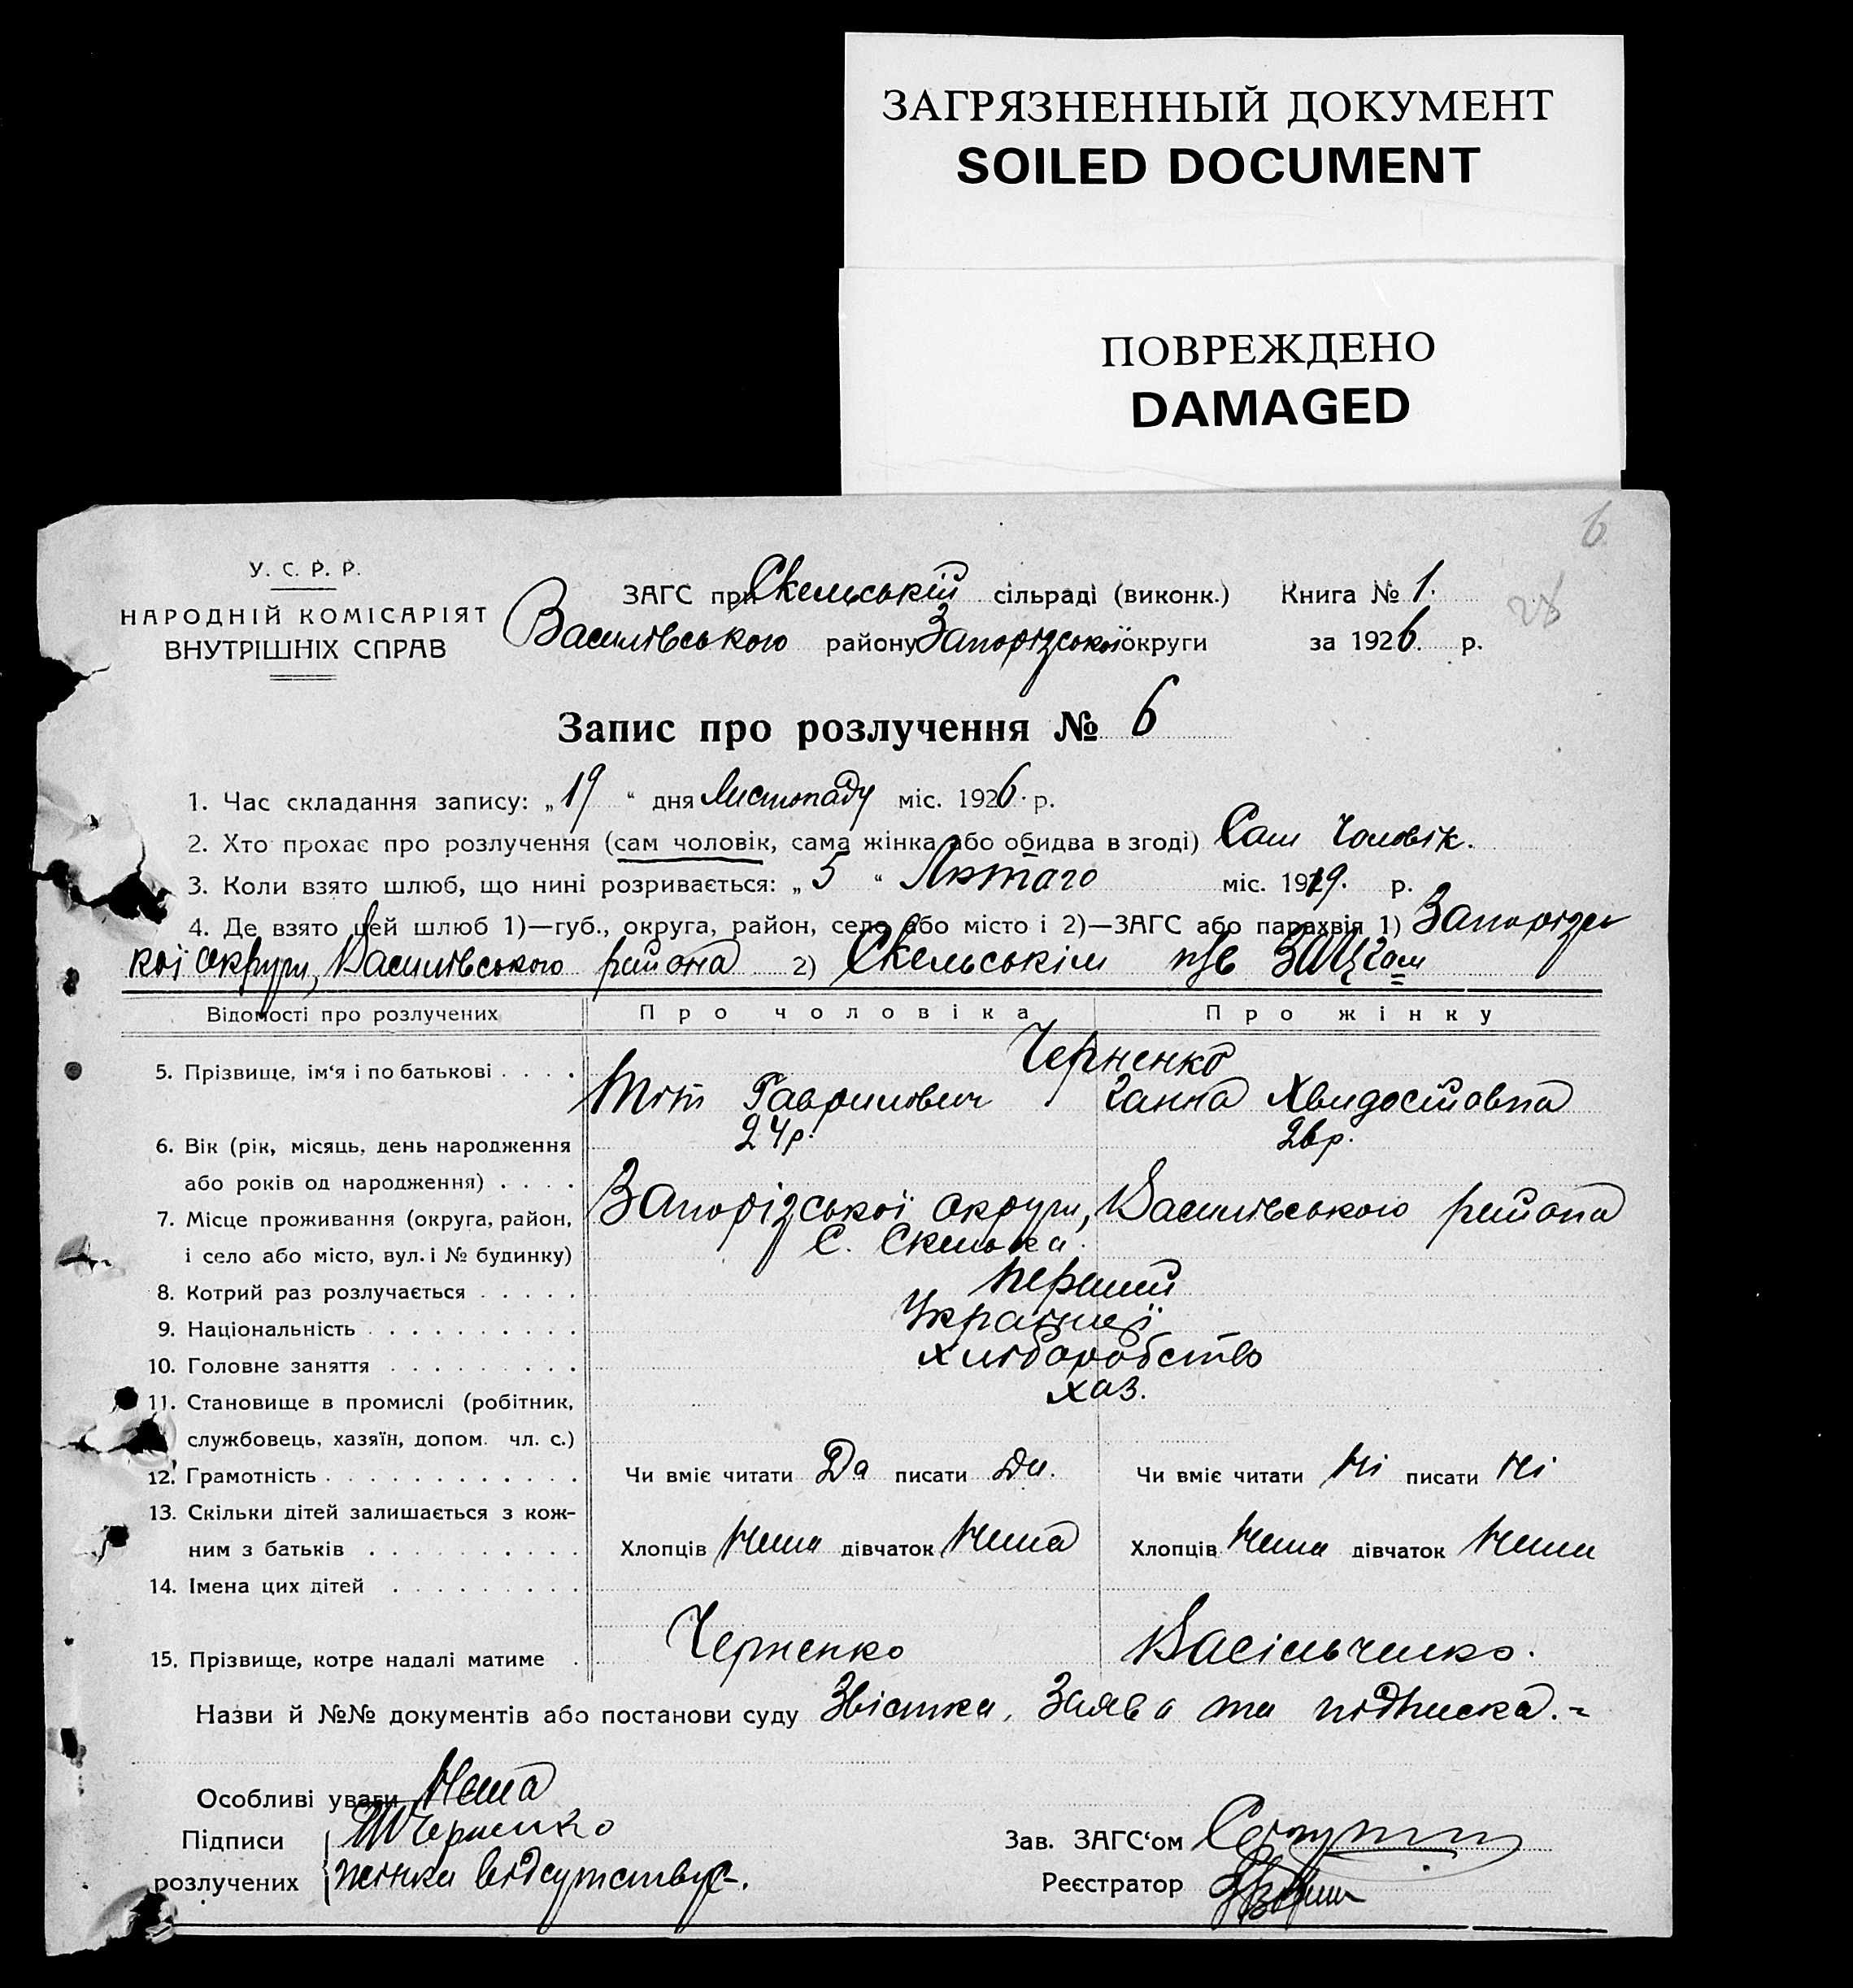 ЗАГРЯЗНЕННЫЙ ДОКУМЕНТ
SOILED DOCUMENT
ПОВРЕЖДЕНО
DAMAGED
6
28
У. С. Р. Р.
НАРОДНІЙ КОМІСАРІЯТ
ВНУТРІШНІХ СПРАВ
ЗАГС при Скельській сільраді (виконк.) Книга № 1.
Василівського району Запорізської округи за 1926. р.
Запис про розлучення № 6
1. Час складання запису: „19“ дня Листопаду міс. 1926. р.
2. Хто прохає про розлучення (сам чоловік, сама жінка або обидва в згоді) Сам Чоловік.
3. Коли взято шлюб, що нині розривається: „5“ Лютаго міс. 1919. р.
4. Де взято цей шлюб 1)—губ., округа, район, село або місто і 2)—ЗАГС або парахвія 1) Запорізсь
кої округи, Василівського района 2) Скельськім
Відомості про розлучених Про чоловіка Про жінку
Черненко
5. Прізвище, ім‘я і по батькові . . . . Тіт Гаврилович Ганна
6. Вік (рік, місяць, день народження 24р. 26р.
або років од народження) . . . .
7. Місце проживання (округа, район, Запорізської округи, Василівського района
і село або місто, вул. і № будинку) С. Скелька.
8. Котрий раз розлучається . . . . . Перший
9. Національність . . . . . . . . . . Українці
10. Головне заняття . . . . . . . . . Хліборобство
11. Становище в промислі (робітник, хаз.
службовець, хазяїн, допом. чл. с.)
12. Грамотність . . . . . . . . . . . . Чи вміє читати Да писати Да. Чи вміє читати Ні писати Ні
13. Скільки дітей залишається з кож-
ним з батьків . . . . . . . . . . Хлопців Нема дівчаток Нема Хлопців Нема дівчаток Нема
14. Імена цих дітей . . . . . . . . .
15. Прізвище, котре надалі матиме . Черненко Васільченко.
Назви й №№ документів або постанови суду Звістка, Заява та підписка.=
Особливі уваги Нема
Підписи ТЧерненко Зав. ЗАГС‘ом
розлучених жінка відсутствує. Реєстратор